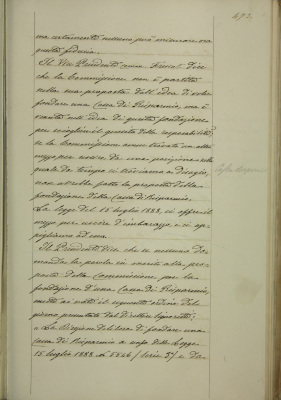 492.
ma certamente nessuno potrà misurare ma
questa fiducia.
Il Vice Presidente rag. dice
che la Commissione non è partita
nella sua proposta dall'idea di voler
fondare una Cassa di Risparmio, ma è
venuta nell'idea di questa fondazione
per sciogliere il quesito della responsabilità
se la Commissione avesse trovato un altro
mezzo per uscire da una posizione nella
quale da tempo ci troviamo a disagio,
non avrebbe fatta la proposta della
fondazione della Cassa di Risparmio.
La legge del 15 luglio 1888, ci offre il
mezzo per uscire d'imbarazzo e ci ap-
pigliamo ad essa.
Il Presidente dice che se nessuno do-
manda la parola in merito alla pro-
posta della Commissione per la
fondazione d'una Cassa di Risparmio,
mette ai voti il seguente ordine del
giorno presentato dal Direttore Signoretti:
" La Direzione delibera di fondare una
Cassa di Risparmio a senso della Legge
15 luglio 1888 N. 5546 (serie 3ª) e Da-